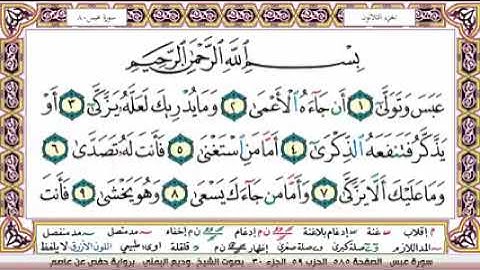 الجزء الثلاثون
سورة عبس-٨٠
بِسْمِ اللَّهِ الرَّحْمَٰنِ الرَّحِيمِ
عَبَسَ وَتَوَلَّىٰ ١ أَن جَاءَهُ الْأَعْمَىٰ ٢ وَمَا يُدْرِيكَ لَعَلَّهُ يَزَّكَّىٰ ٣ أَوْ
يَذَّكَّرُ فَتَنفَعَهُ الذِّكْرَىٰ ٤ أَمَّا مَنِ اسْتَغْنَىٰ ٥ فَأَنتَ لَهُ تَصَدَّىٰ ٦
وَمَا عَلَيْكَ أَلَّا يَزَّكَّىٰ ٧ وَأَمَّا مَن جَاءَكَ يَسْعَىٰ ٨ وَهُوَ يَخْشَىٰ ٩ فَأَنتَ
إقلاب غنة إدغام بلاغنة إدغام إخفاء مد متصل مد منفصل
المد اللازم صلة كبرى صلة صغرى إظهار قلقلة طبيعي اللون الأزرق لا يلفظ
سورة عبس الصفحة ٥٨٥ الحزب ٥٩ الجزء ٣٠ بصوت الشيخ وديع اليمني برواية حفص عن عاصم